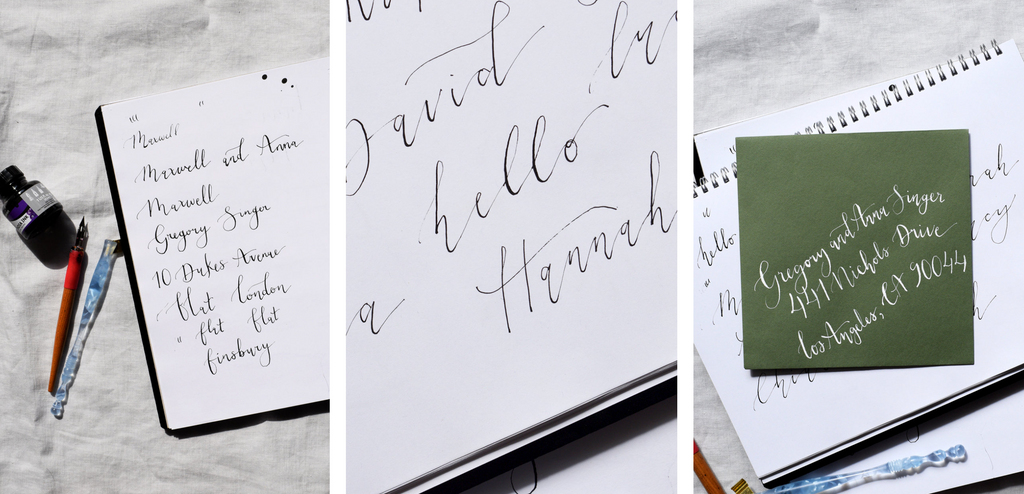 Maxwell
Maxwell and Anna
Maxwell
Gregory Singer
10 Dukes Avenue
flat london
flat flat
finsbury
David
hello
Hannah
a
hello
Gregory and Anna Singer
441 Nichols Drive
los Angeles, CA 90044